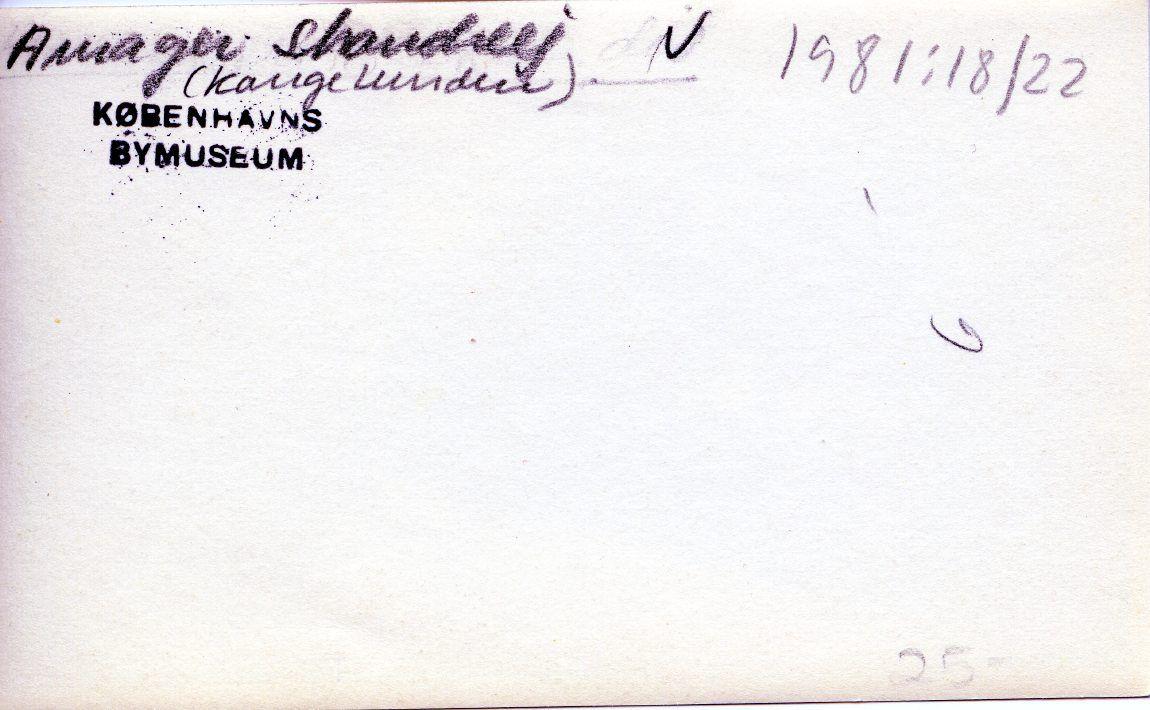 Amager Strandvej V 1981:18/22
(Kongelunden)
KØBENHAVNS
BYMUSEUM
25-